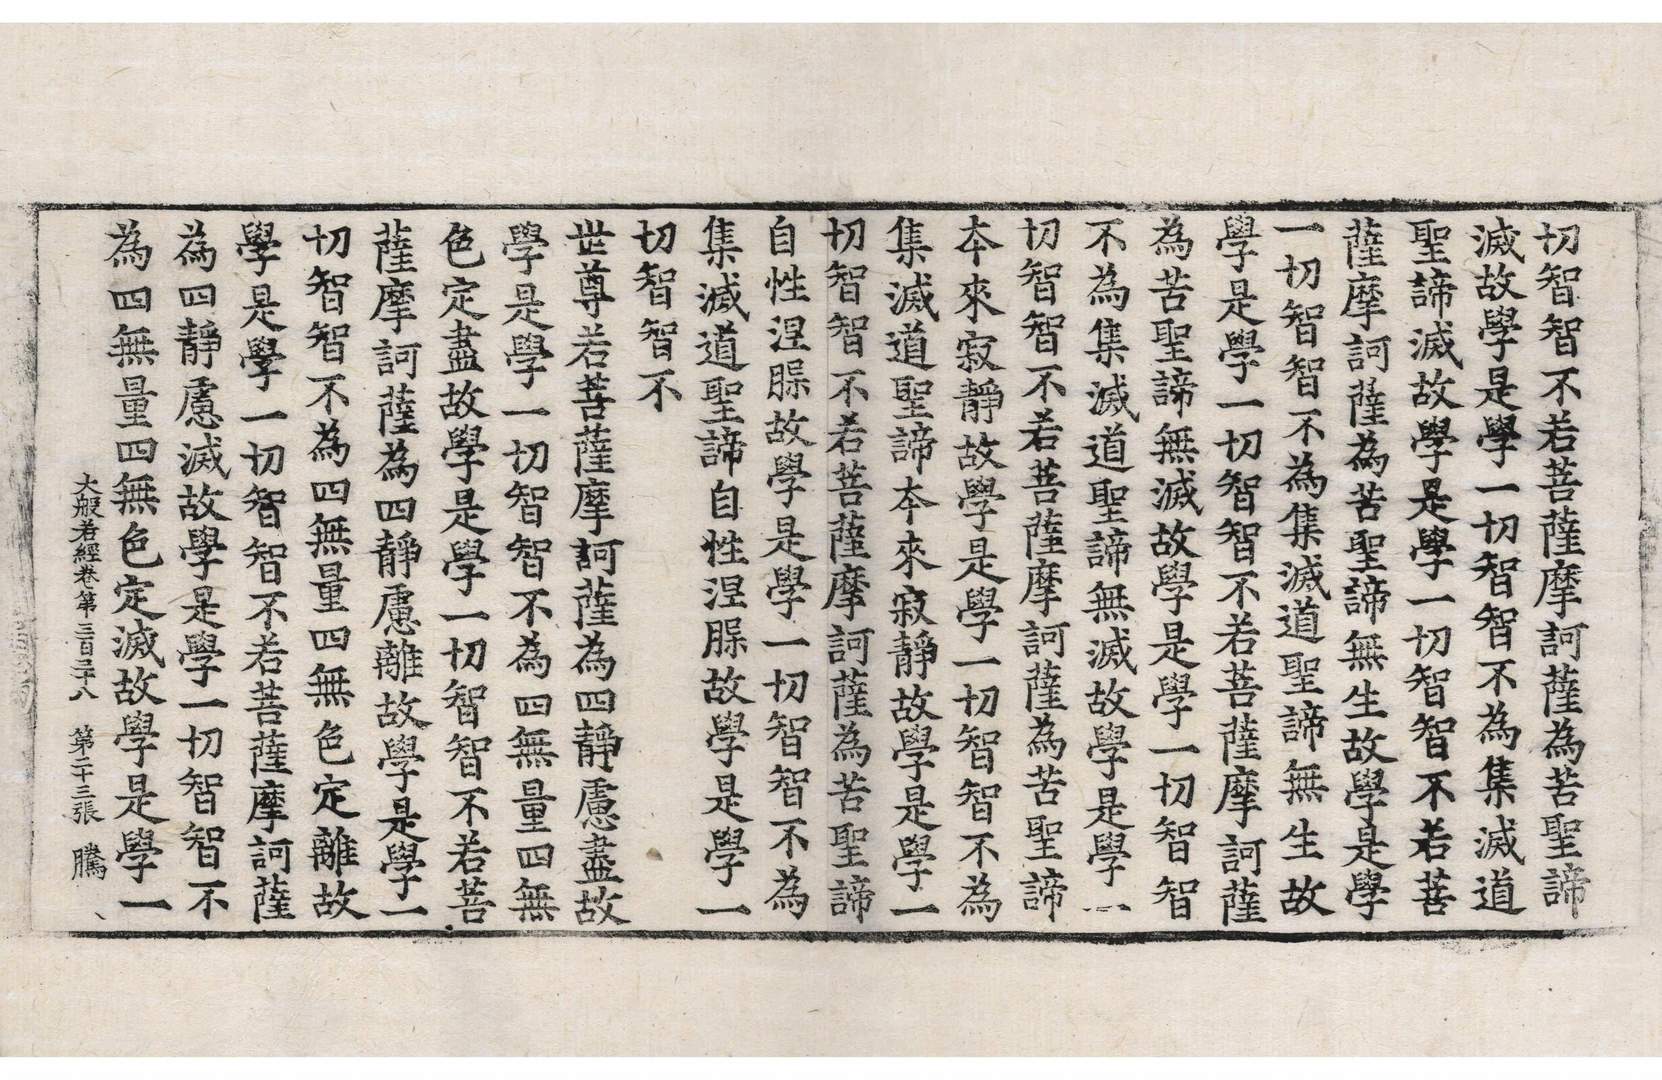 切智智不若菩薩摩訶薩為苦聖諦
滅故學是學一切智智不為集滅道
聖諦滅故學是學一切智智不若菩
薩摩訶薩為苦聖諦無生故學是學
一切智智不為集滅道聖諦無生故
學是學一切智智不若菩薩摩訶薩
為苦聖諦無滅故學是學一切智智
不為集滅道聖諦無滅故學是學一
切智智不若菩薩摩訶薩為苦聖諦
夲來寂靜故學是學一切智智不為
集滅道聖諦夲來寂靜故學是學一
切智智不若菩薩摩訶薩為苦聖諦
自性涅槃故學是學一切智智不為
集滅道聖諦自性涅槃故學是學一
切智智不
世尊若菩薩摩訶薩為四靜慮盡故
學是學一切智智不為四無量四無
色定盡故學是學一切智智不若菩
薩摩訶薩為四靜慮離故學是學一
切智智不為四無量四無色定離故
學是學一切智智不若菩薩摩訶薩
為四靜慮滅故學是學一切智智不
為四無量四無色定滅故學是學一
大般若經卷第三百三十八 第二十三張 騰